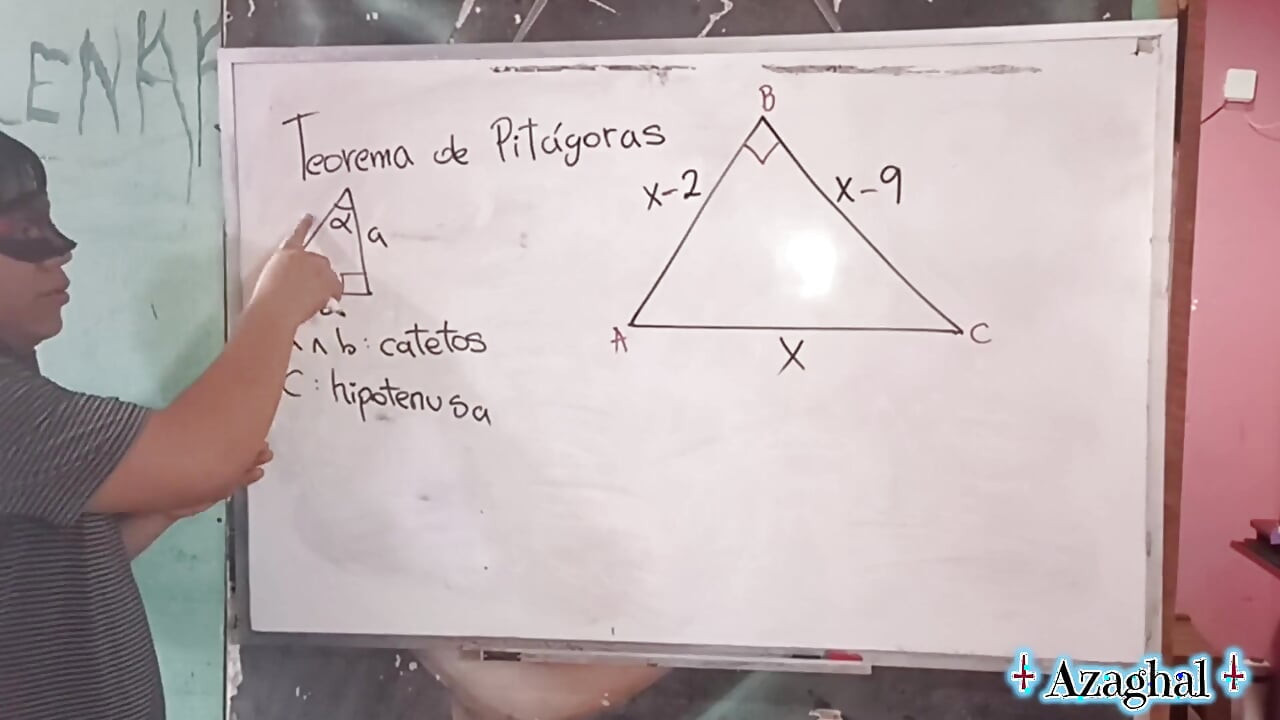 ENKK
Teorema de Pitágoras
α
a
∧ b: catetos
C: hipotenusa
B
x-2
x-9
A
C
X
Azaghal